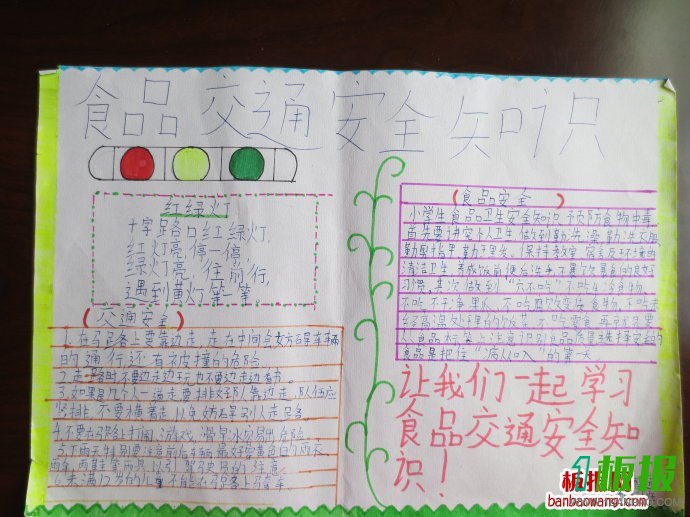 食品交通安全知识
红绿灯
十字路口红绿灯,
红灯亮,停一停,
绿灯亮,往前行,
遇到黄灯等一等。
(交通安全)
1.在马路上要靠边走,走在中间会妨碍车辆
的通行还有被撞的危险
2.走路时不要边走边玩也不要边走边看书
3.如果是几个人一起走要排好队靠边走,队伍应
竖排,不要横着走以免妨碍别人走路
4.不要在马路上打闹、游戏、滑旱冰容易出危险
5.下雨天特别要注意前后车辆最好穿黄色的雨
6.未满12岁的儿童不能在马路上骑车。
(食品安全)
小学生食品卫生安全知识 预防食物中毒,
首先要讲究个人卫生做到勤洗澡,勤洗衣服,
勤剪指甲,勤理发。保持教室、宿舍及环境的
清洁卫生,养成饭前便后洗手
习惯,其次做到"六不吃"不吃生冷食物、
不吃不干净果 不吃腐败变质食物、不吃未
经高温处理的饭菜、不吃零食
食品是把住"病从口入"的第一关。
让我们一起学习
食品交通安全知
识!
板报
板报网
banbaowang.com